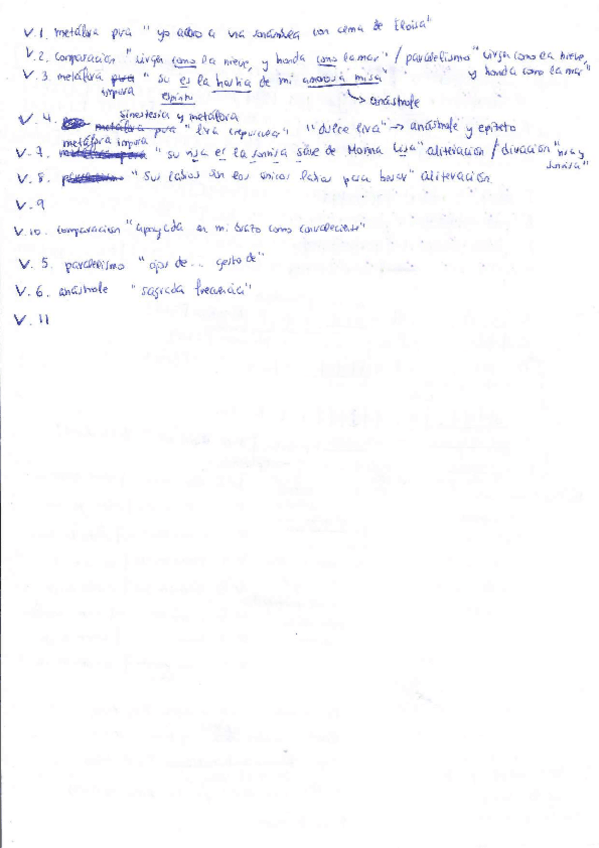 V.1. metáfora pura " yo adoro a una sonámbula con alma de Eloísa"
V.2. comparación "virgen como la nieve, y honda como la mar" / paralelismo "virgen como la nieve, y honda como la mar"
V.3 metáfora impura " su espíritu es la hostia de mi amorosa misa"
→ anástrofe
V.4. sinestesia y metáfora pura "lira crepuscular" "dulce lira" → anástrofe y epíteto
V.7. metáfora impura "su risa es la sonrisa suave de Monna Lisa" aliteración / derivación "risa y sonrisa"
V.8. "Sus labios son los únicos labios para besar" aliteración
V.9
V.10. comparación "apoyada en mi brazo como convaleciente"
V.5. paralelismo "ojos de... gesto de"
V.6. anástrofe "sagrada frecuencia"
V.11